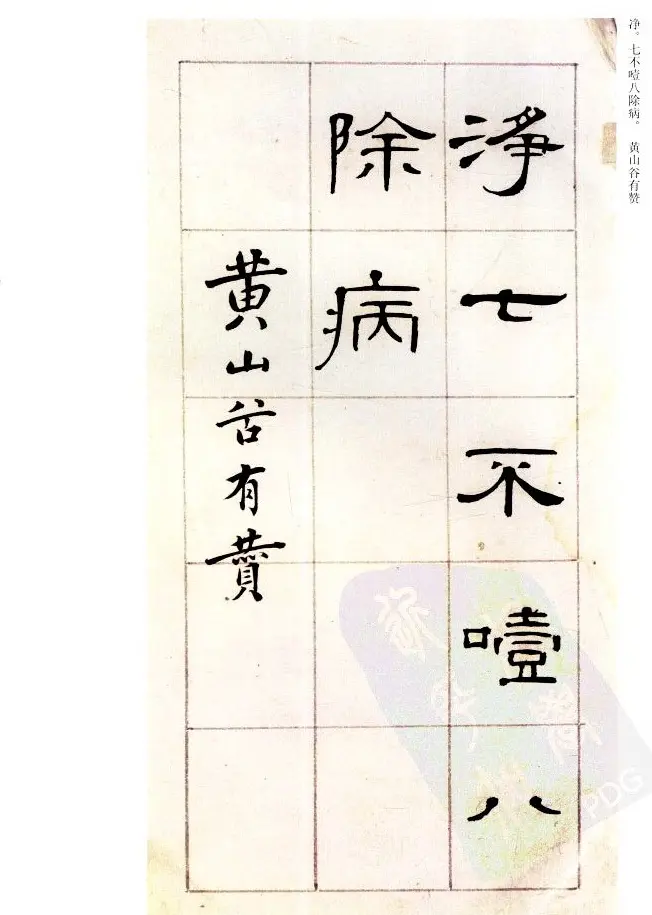 净。七不噎八除病。 黄山谷有赞
淨七不噎八
除病
黄山谷有賛
PDG